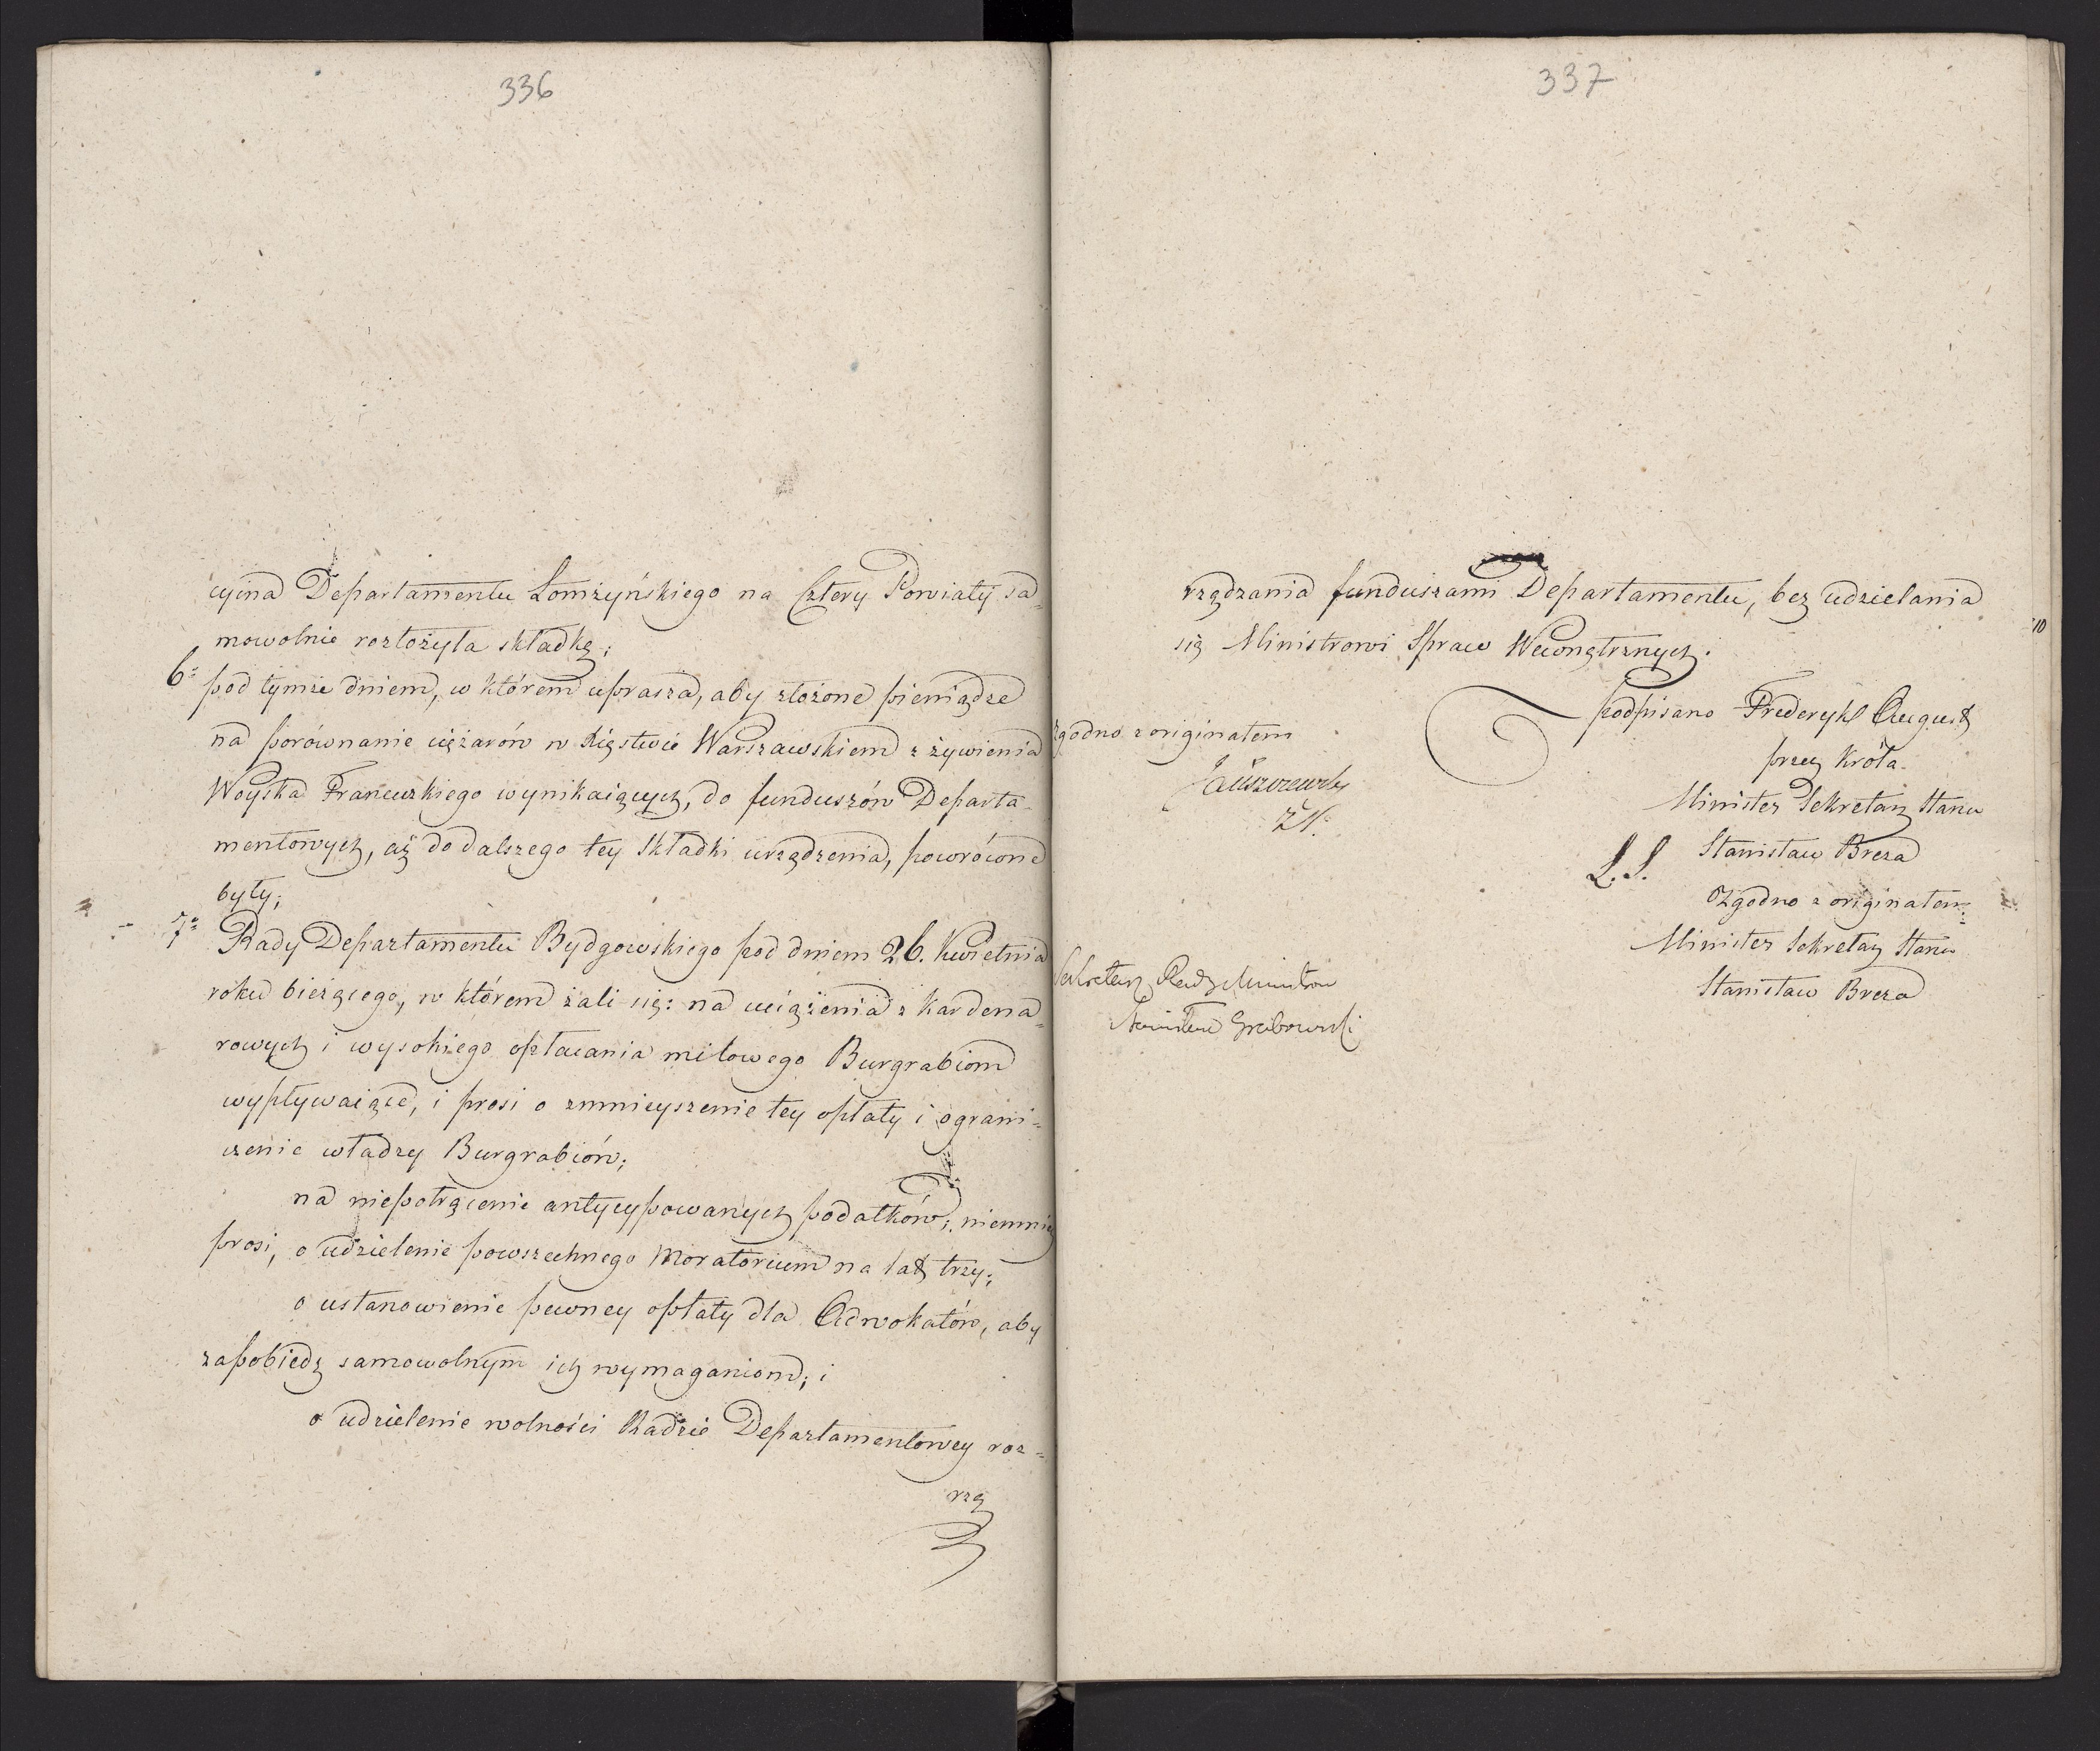 336
cyina Departamentu Łomżyńskiego na Cztery Powiaty sa=
mowolnie rozłożyła składkę;
6° pod tymże dniem, w którem uprasza, aby złożone pieniądze
na porównanie ciężarów w Xięstwie Warszawskiem z żywienia
Woyska Francuzkiego wynikaiących, do funduszów Departa=
mentowych, aż do dalszego tey składki urządzenia, powrócone
były;
7° Rady Departamentu Bydgowskiego pod dniem 26. Kwietnia
roku bieżącego, w którem żali się: na uciążenia z Kardena=
rowych i wysokiego opłacania milowego Burgrabiom
wypływaiące, i prosi o zmnieyszenie tey opłaty i ograni=
czenie władzy Burgrabiów;
na niepotrącenie antycypowanych podatków; niemniey
prosi, o udzielenie powszechnego Moratorium na lat trzy;
o ustanowienie pewney opłaty dla Adwokatów, aby
zapobiedz samowolnym ich wymaganiom; i
o udzielenie wolności Radzie Departamentowey roz=
rzą
337
rządzania funduszami Departamentu, bez udzielania
się Ministrowi Spraw Wewnętrznych.
podpisano Fryderyk August
przez Króla
Minister Sekretarz Stanu
L. S. Stanisław Breza
Zgodno z originałem:
Minister Sekretarz Stanu
Stanisław Breza
Zgodno z originałem
Sekretarz Rady Ministrow
Stanisław Grabowski
10